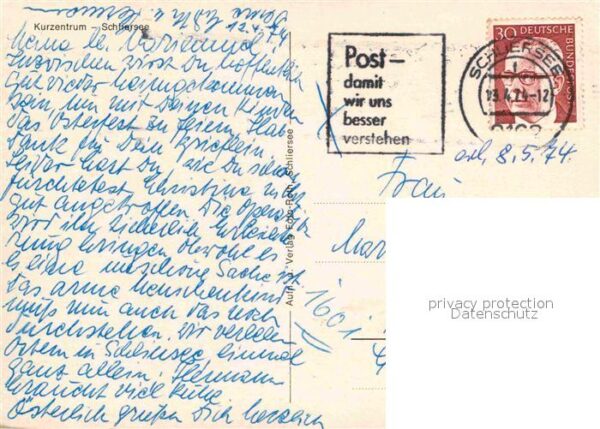 Kurzentrum Schliersee
12.4.74
Meine lb. Marianne!
Inzwischen wirst Du hoffentlich
gut wieder heimgekommen
sein, um mit Deinen Kindern
das Osterfest zu feiern. Hab
Dank für Dein Brieflein.
Leider hast Du, wie Du schon
fürchtetest Christina nicht
gut angetroffen. Die Operation
wird ihr sicherlich
bringen obwohl es
ja eine Sache ist
das arme Menschenkind
muß nun auch das noch
durchstehen. Wir verleben
Ostern in Schliersee einmal
ganz allein. Hermann
braucht viel Ruhe
Österlich grüßen Dich herzlich
Aufn. u. Verlag Foto Roth, Schliersee
Post –
damit
wir uns
besser
verstehen
30 DEUTSCHE BUNDESPOST
SCHLIERSEE
13.4.74-12
8162
erh. 8.5.74.
Frau
Mar
1601
privacy protection
Datenschutz